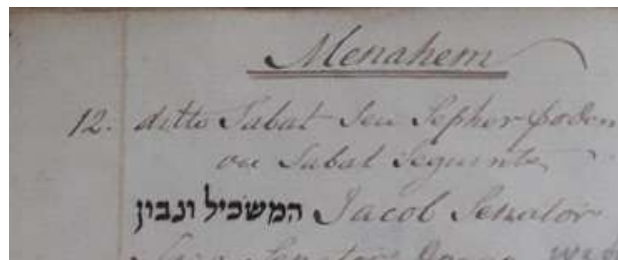 Menahem
12. ditto Sabat Seu Sepher poden
ou Sabat Seguinte
המשכיל ונבון Jacob Senator
Senator